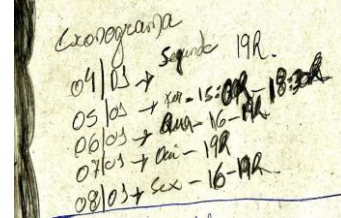 Cronograma
04/01 → Segunda 19h.
05/01 → ter - 15: - 18:30h
06/01 → Qua - 16 - 19h
07/01 → Qui - 19h
08/01 → Sex - 16 - 19h